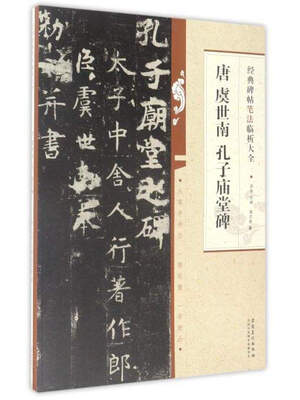 经典碑帖笔法临析大全
唐 虞世南 孔子庙堂碑
孔子廟堂之碑
太子中舍人行著作郎
臣虞世南
勅撰并書